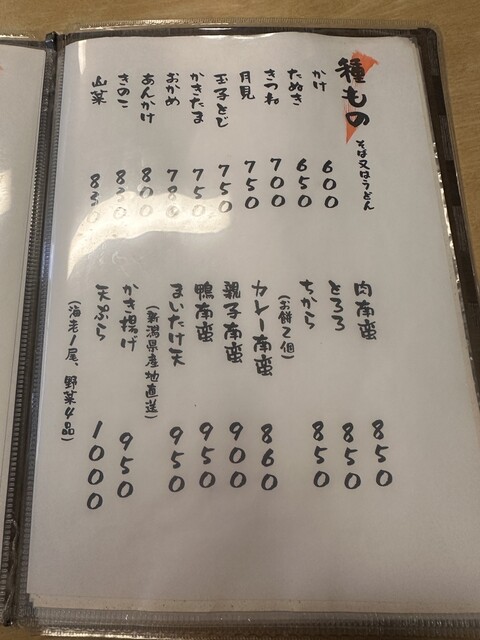 種もの そば又はうどん
かけ 600
たぬき 650
きつね 700
月見 750
玉子とじ 750
かきたま 750
おかめ 780
あんかけ 800
きのこ 830
山菜 830
肉南蛮 850
とろろ 850
ちから 850
(お餅2個)
カレー南蛮 860
親子南蛮 900
鴨南蛮 950
まいたけ天 950
(新潟県産地直送)
かき揚げ 950
天ぷら 1000
(海老1尾、野菜4品)